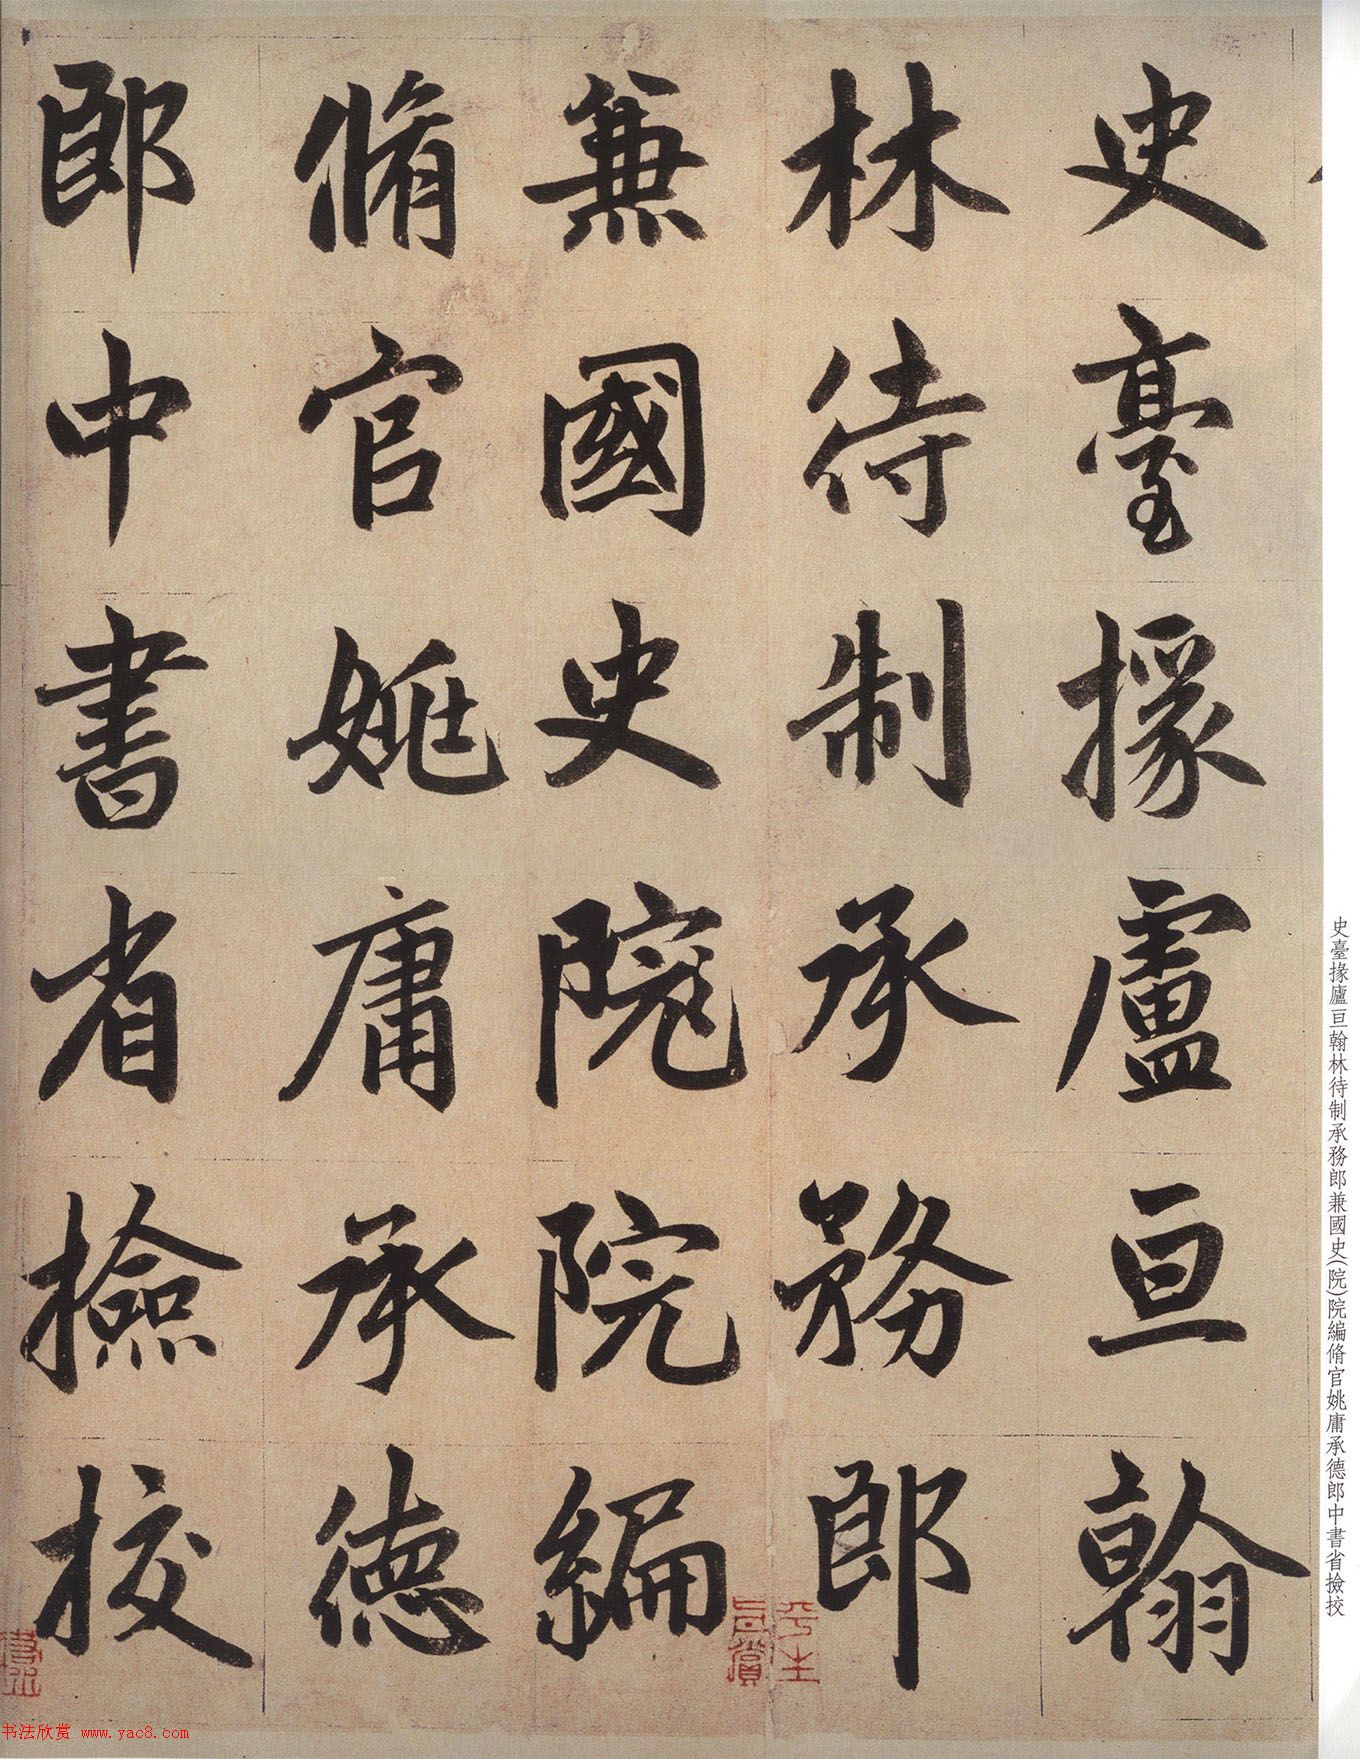 史臺掾盧亘翰
林待制承務郎
兼國史院院編
脩官姚庸承德
郎中書省撿挍
史臺掾廬亘翰林待制承務郎兼國史(院)院編脩官姚庸承德郎中書省撿挍
平生
真賞
书法欣赏 www.yac8.com